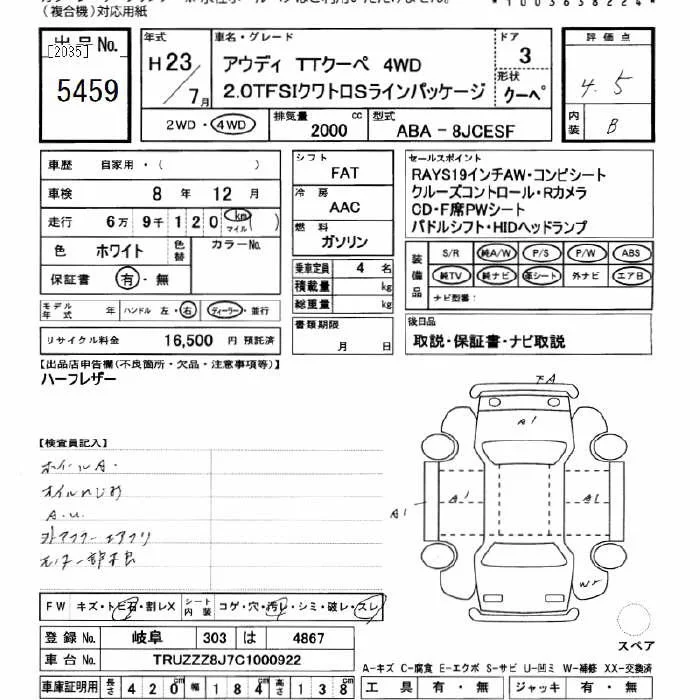 (複合機)対応用紙
出品No.
[2035]
5459
年式
H23/7月
車名・グレード
アウディ TTクーペ 4WD
2.0TFSIクワトロSラインパッケージ
ドア
3
形状
クーペ
2WD・4WD
排気量
2000
cc
型式
ABA-8JCESF
評価点
4.5
内装
B
車歴 自家用・( )
車検 8年 12月
走行 6万 9千 1 2 0 km マイル
色 ホワイト 色替 カラーNo.
保証書 有・無
モデル年式 年 ハンドル 左・右 ディーラー・並行
リサイクル料金 16,500 円 預託済
シフト
FAT
冷房
AAC
燃料
ガソリン
乗車定員 4 名
積載量 kg
総重量 kg
書類期限
月 日
セールスポイント
RAYS19インチAW・コンビシート
クルーズコントロール・Rカメラ
CD・F席PWシート
パドルシフト・HIDヘッドランプ
装備品
S/R 純A/W P/S P/W ABS
純TV 純ナビ 革シート 外ナビ エアB
ナビ型番:
後日品
取説・保証書・ナビ取説
【出品店申告欄(不良箇所・欠品・注意事項等)】
ハーフレザー
【検査員記入】
ホイールA.
オイルにじみ
A.U.
下A
A1
A1
A1
A1
W
FW キズ・トビ石・割レX シート内装 コゲ・穴・汚レ・シミ・破レ・スレ
登録No. 岐阜 303 は 4867
車台No. TRUZZZ8J7C1000922
車庫証明用 長さ 420cm 幅 184cm 高さ 138cm
スペア
A-キズ C-腐食 E-エクボ S-サビ U-凹ミ W-補修 XX-交換済
工具 有・無 ジャッキ 有・無